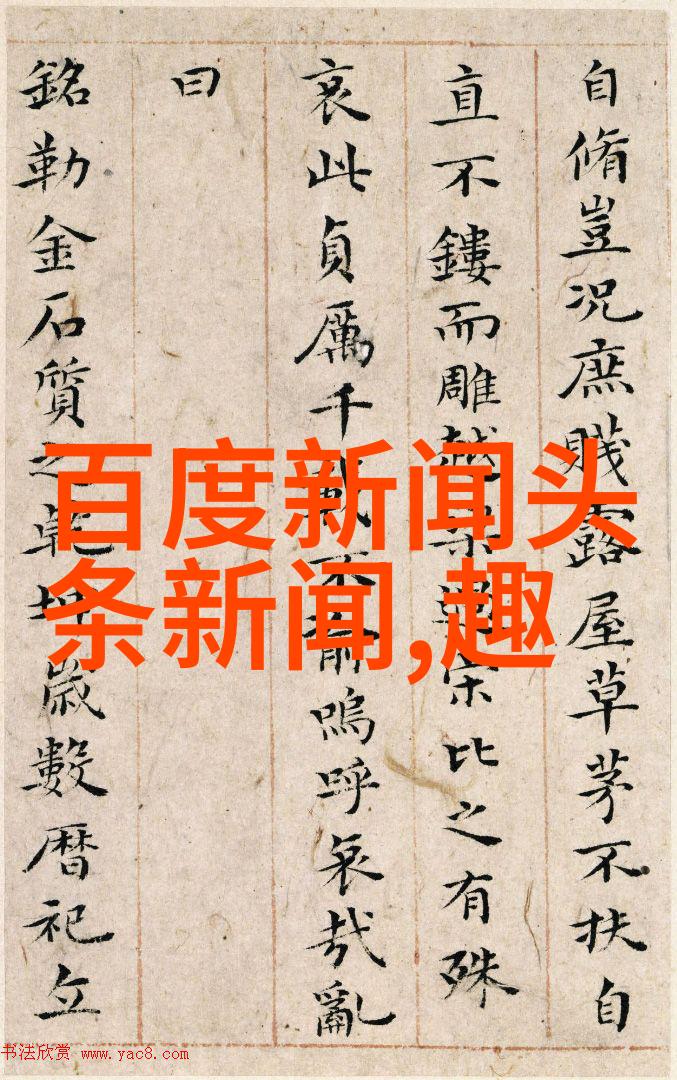 自脩豈况庶賤露屋草茅不扶自
直不鏤而雕越梁過宋比之有殊
哀此貞厲千載不渝嗚呼哀哉亂
曰
銘勒金石質之乾坤歲數曆祀立
百度新闻头
条新闻,趣
书法欣赏 www.yac8.com